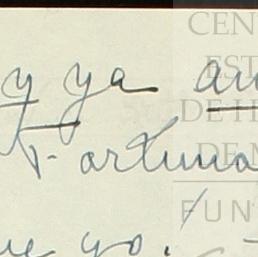 y ya
Fortuna
yo.
CEN
EST
DE H
DE M
FUN